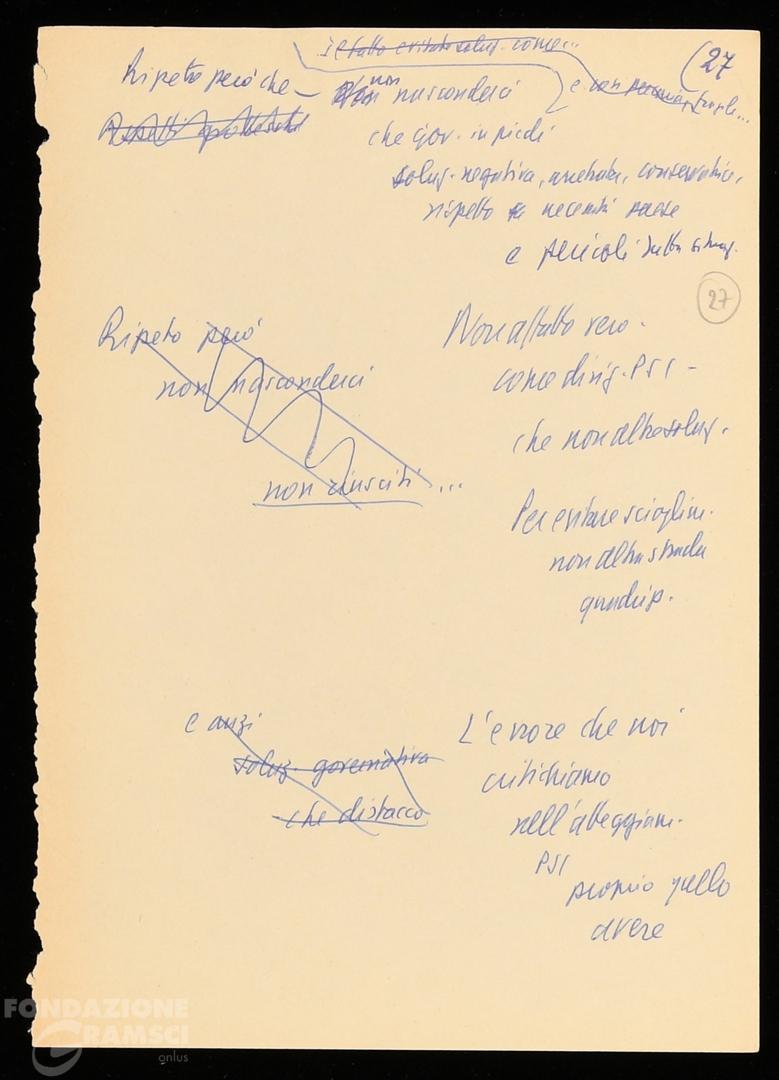 se fatto evitato soluz. come...
(27
Ripeto però che — non nasconderci
e con
Rispetto
che gov. in piedi
soluz. negativa, arretrata, conservatrice,
rispetto a necessità paese
e pericoli situaz.
27
Ripeto però
non nasconderci
non riusciti ...
Non affatto vero -
come dirig. PSI -
che non altra soluz.
Per evitare scioglim.
non altra strada
quadrip.
e anzi
soluz. governativa
che distacco
L'errore che noi
critichiamo
nell'atteggiam.
PSI
proprio quello
avere
FONDAZIONE
GRAMSCI
onlus